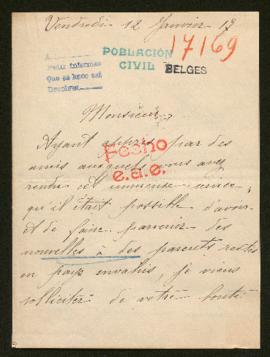 Vendredi 12 Janvier 17
17169
A
Pedir informes
Que se haga así
Despierta
POBLACIÓN
CIVIL
BELGES
Monsieur,
Ayant appris par des
amis auxquels vous avez
rendu cet immense service,
qu'il était possible d'avoir
et de faire parvenir des
nouvelles à des parents restés
en pays envahis, je viens
solliciter de votre bonté
Fecho
e.a.e.